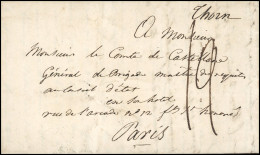 Thorn
A Monsieur
Monsieur le Comte de Castellane
Général de Brigade maître des requêtes
au conseil d'état
en son hotel
rue de l'arcade n° 12 fbg St honoré
Paris